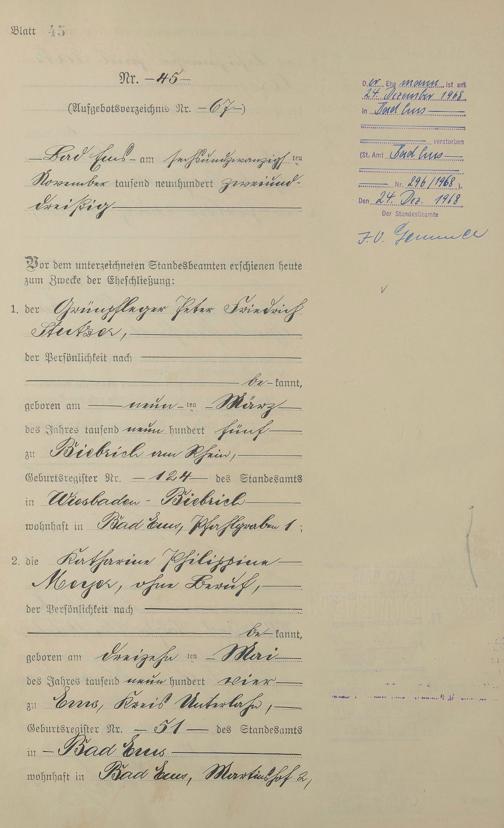 Blatt 45
Nr. 45
(Aufgebotsverzeichnis Nr. 67)
Bad Ems am sechsundzwanzigsten
November tausend neunhundert zweiund-
dreißig
Vor dem unterzeichneten Standesbeamten erschienen heute
zum Zwecke der Eheschließung:
1. der Grünpfleger Peter Friedrich
der Persönlichkeit nach
be-kannt,
geboren am neunten März
des Jahres tausend neun hundert fünf
zu Biebrich am Rhein,
Geburtsregister Nr. 124 des Standesamts
in Wiesbaden-Biebrich
wohnhaft in Bad Ems, Pfahlgraben 1;
2. die Katharine Philippine
Meyer, ohne Beruf,
der Persönlichkeit nach
be-kannt,
geboren am dreizehnten Mai
des Jahres tausend neun hundert vier
zu Ems, Kreis Unterlahn,
Geburtsregister Nr. 51 des Standesamts
in Bad Ems
wohnhaft in Bad Ems, Martinshof 2,
Der Ehemann ist am
24. Dezember 1968
in Bad Ems
verstorben
(St. Amt Bad Ems
Nr. 296/1968).
Den 24. Dez. 1968
Der Standesbeamte